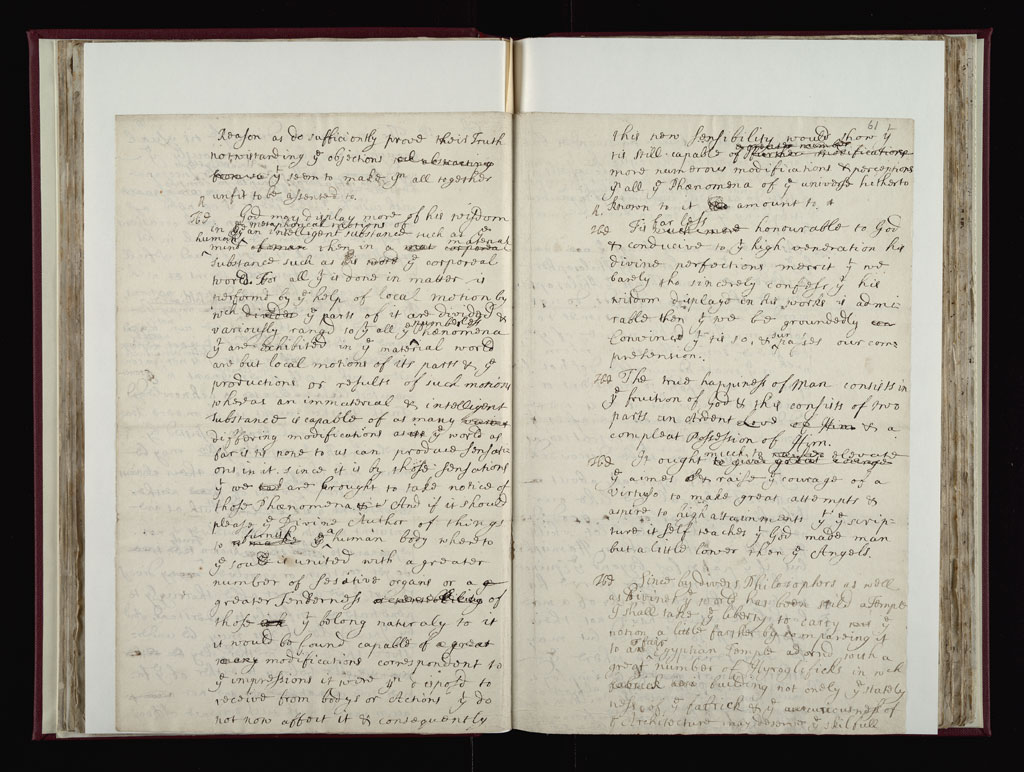 Reason as do sufficiently prove their Truth
notwstanding yͤ objections
yͭ seem to make yᵐ all together
unfit to be assented to.
God may display more of his wisdom
in yͤ metaphorical motions of
an intelligent substance such as yͤ
human mind then in a material
substance such as is yͤ corporeal
world. For all yͭ is done in matter is
performd by yͤ help of local motion by
wch yͤ parts of it are divided &
variously rangd so yͭ all yͤ number of Phænomena
yͭ are exhibited in yͤ material world
are but local motions of its parts & yͤ
productions or results of such motions
whereas an immaterial & intelligent
substance is capable of as many
differing modifications as yͤ world as
far as tis none to us can produce sensati-
ons in it. since it is by those sensations
yͭ we are brought to take notice of
those Phænomena. And if it should
please yͤ Divine Author of things
to furnish yͤ human body whereto
yͤ soul is united with a greater
number of sesative organs or a
greater Tenderness of
those yͭ belong naturaly to it
it would be found capable of a great
many modifications correspondent to
yͤ impressions it were yⁿ dispose to
receive from bodys or Actions yͭ do
not now affect it & consequently
61
this new sensibility would show yͭ
tis still capable of a greater number
more numerous modifications & perceptions
yⁿ all yͤ Phænomena of yͤ universe hitherto
known to it amount to.
Tis far less honourable to God
& conducive to yͤ high veneration his
divine perfections merrit yͭ we
barely tho sincerely confess yͭ his
wisdom displayd in his works is admi-
rable then yͭ we be groundedly
Convinced yͭ tis so, & surpasses our com-
prehension.
The true happiness of Man consists in
yͤ fruition of God & this consists of two
parts an Ardent Love of Him & a
compleat Possession of Him.
It ought much to elevate
yͤ aimes & raise yͤ courage of a
Virtuoso to make great attempts &
aspire to high attainments yͭ yͤ scrip-
ture it self teaches yͭ God made man
but a little lower then yͤ Angels.
Since by divers Philosophers as well
as Divines yͤ world has been stild a Temple
I shall take yͤ liberty to carry on yͤ
notion a little farther by compareing it
to a fair Egyptian Temple adornd with a
great number of Hyroglificks in wch
building not onely yͤ stately
ness of yͤ fabrick & yͤ of
Architecture may deserve yͤ skilfull